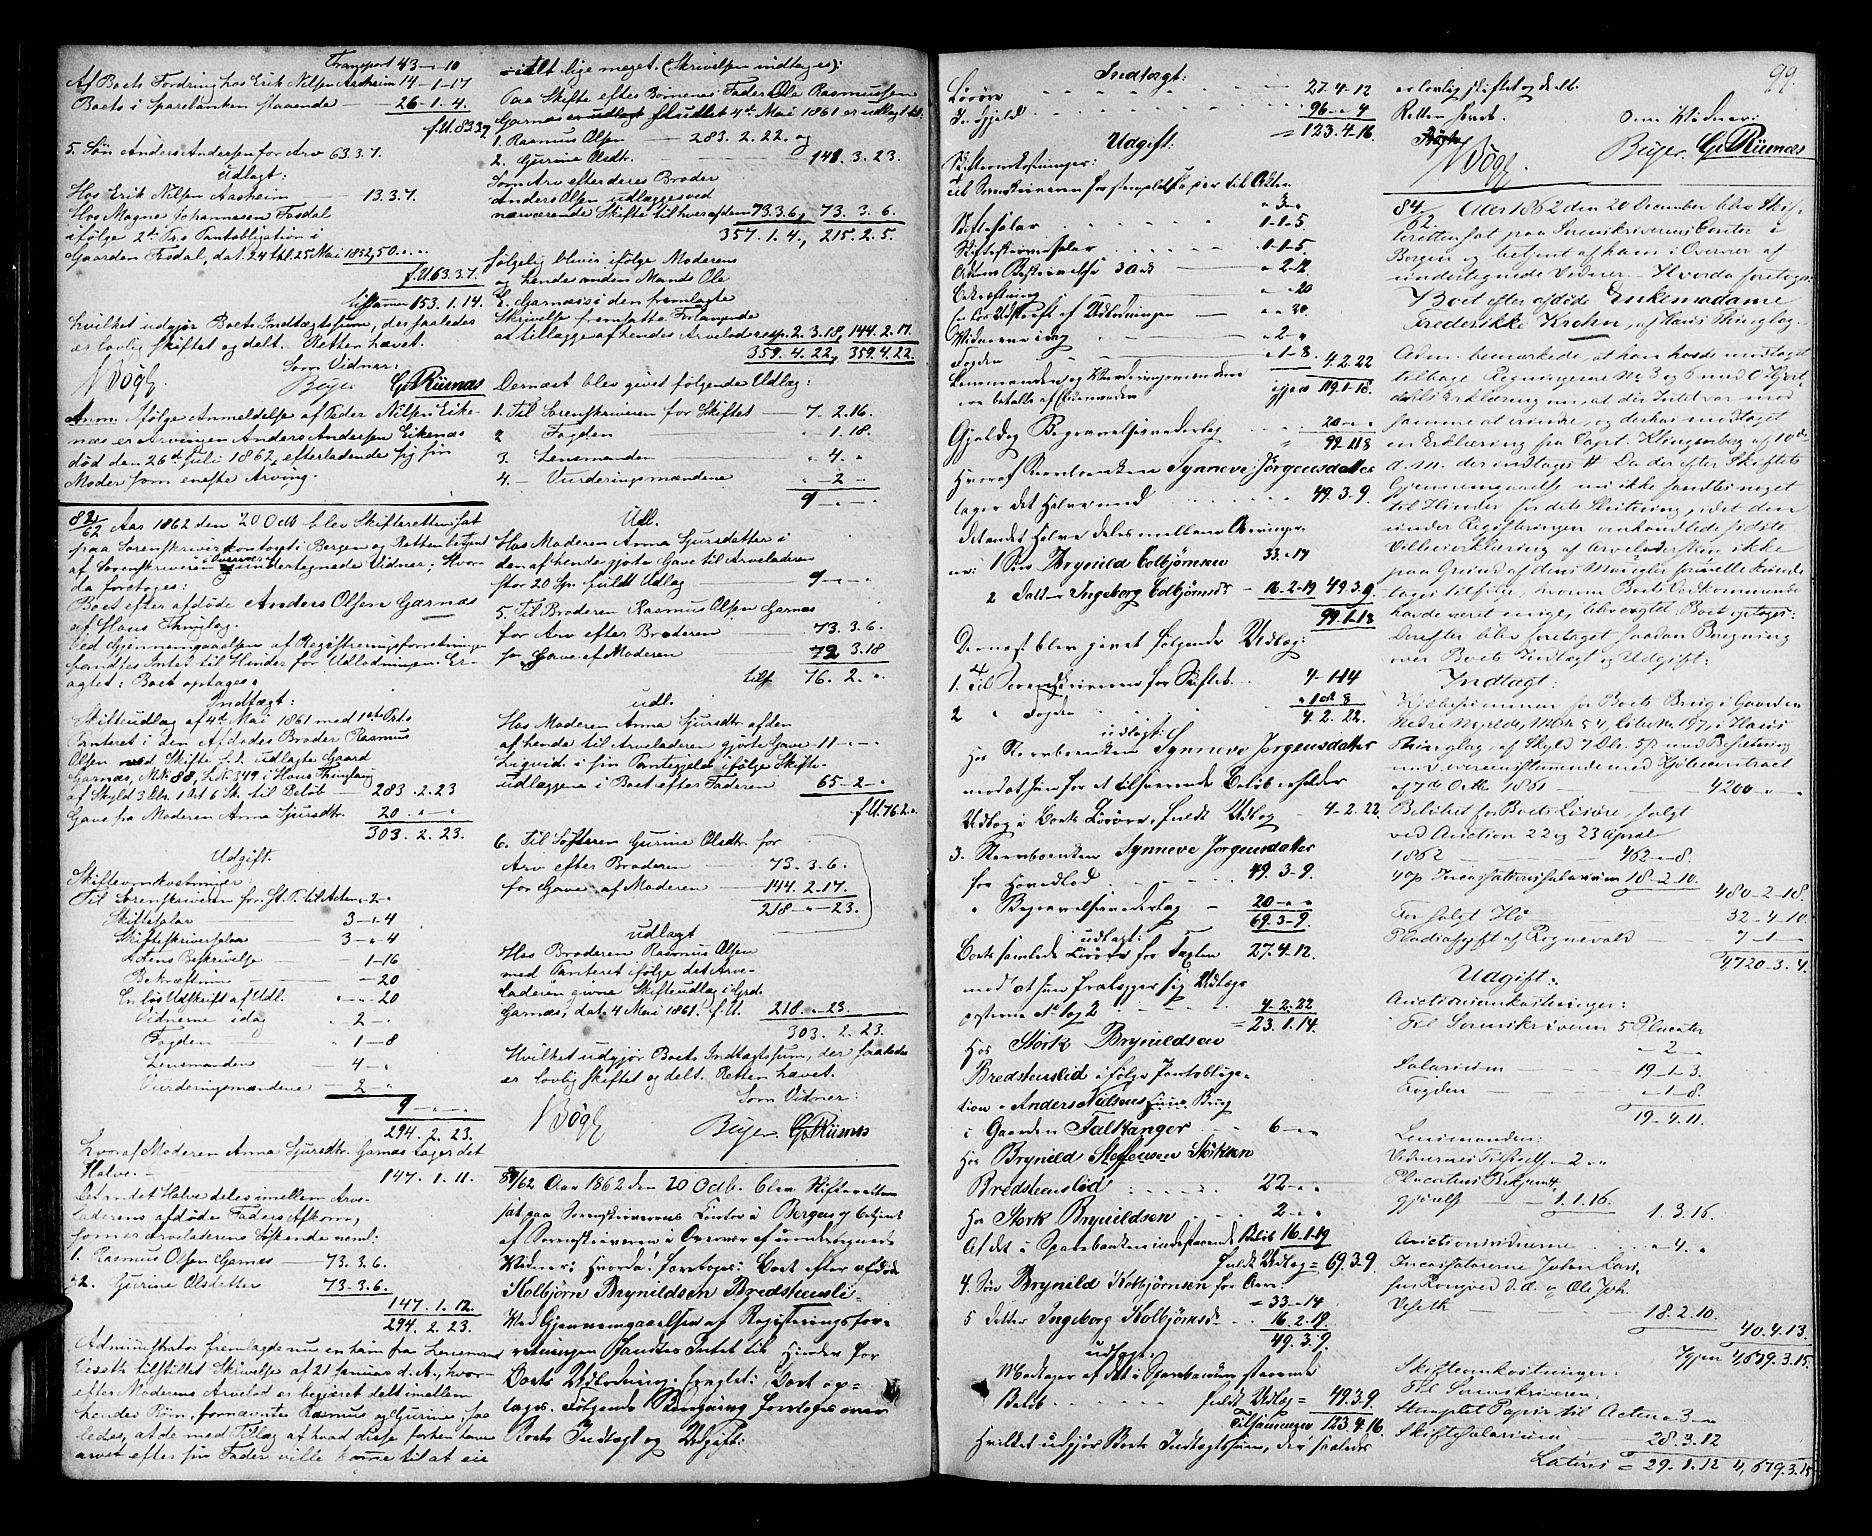 Transport 43 - " - 10
Af Boets Fordring hos Erik Nilsen Aasheim 14 - 1 - 17
Boets i Sparebanken staaende — 26 - 1 - 4.
f. U. 83.3.7.
5. Søn Anders Andersen for Arv 63.3.7.
Udlagt:
Hos Erik Nilsen Aasheim — 13.3.7.
Hos Magne Johannesen Fosdal
ifølge 2den Pr. Pantobligation i
Gaarden Fosdal, dat. 24 thl. 25 Mai 1852, 50. " "
f. U. 63.3.7.
Tilsammen 153.1.14.
hvilket udgjør Boets Indtægtssum, der saaledes
er lovlig skiftet og delt. Retten hævet.
Som Vidner:
N Bøgh Beyer G. Riisnæs
Anm. Ifølge Anmeldelse af Peder Nilsen Eike-
næs er Arvingen Anders Andersen Eikenæs
død den 26de Juli 1862, efterladende sig sin
Moder som eneste Arving.
82/62 Aar 1862 den 20 Octb blev Skifteretten sat
paa Sorenskriverkontoret i Bergen og Retten betjent
af Sorenskriveren i Overvær af undertegnede Vidner; Hvor-
da foretoges:
Boet efter afdøde Anders Olsen Garnæs
af Haus Thinglag.
Ved Gjennemgaaelsen af Registreringsforretningen
fandtes Intet til Hinder for Udlodningen. Er-
agtet: Boet optages.
Indtægt:
Skifteudlæg af 4de Mai 1861 med 1ste Prts
Panteret i den Afdødes Broder Rasmus
Olsen ved Skifte s. D. udlagte Gaard
Garnæs, M.N. 88, L.N. 349, i Haus Thinglag
af Skyld 3 Dlr. 1 Ort 6 Sk. til Beløb — 283. 2. 23
Gave fra Moderen Anna Sjursdtr. 20. " "
303. 2. 23.
Udgift.
Skifteomkostninger
Til Sorenskriveren for St. P. til Acten " - 2 - "
Skiftesalar — 3 - " 4
Skifteskriversalær — 3 - " 4
Actens Beskrivelse — " - 1 - 16
Bekræftning — " - " 20
En løs Udskrift af Udl. " - " - 20
Vidnerne idag — " 2 - "
Fogden — " 1 - 8
Lensmanden — " 4 - "
Vurderingsmændene — " - 2 - "
9 - " - "
294. 2. 23.
hvoraf Moderen Anna Sjursdtr. Garnæs tager det
Halve. — 147. 1. 11.
Det andet Halve deles imellem Arve-
laderens afdøde Faders Afkom,
som er arveladerens Søskende neml:
1. Rasmus Olsen Garnæs — 73. 3. 6.
2. Gurine Olsdatter — 73. 3. 6.
147. 1. 12.
294. 2. 23.
Administrator fremlagde nu en ham fra Lensmand
Tilseth tilstillet Skrivelse af 21 Januar d. A., hvor-
efter Moderens Arvelod er begjæret delt imellem
hendes Børn, fornævnte Rasmus og Gurine, saa-
ledes, at de med Tillæg af hvad disse forhen have
arvet efter sin Fader ville komme til at eie
i Alt lige meget. (Skrivelsen indtages):
Paa Skifte efter Børnenes Fader Ole Rasmussen
Garnæs sluttet 4de Mai 1861 er udlagt til:
1. Rasmus Olsen — 283. 2. 22. og
2. Gurine Olsdtr. — 141. 3. 23.
Som Arv efter deres Broder
Anders Olsen udlægges ved
nærværende Skifte til hver af dem 73. 3. 6, 73. 3. 6.
357. 1. 4., 215. 2. 5.
følgelig blivis ifølge Moderens
og hendes anden Mands Ole
E. Garnæs's i den fremlagte
Skrivelse fremsatte Forlangende
at tillægge af hendes Arvelod resp. 2. 3. 18, 144. 2. 17.
359. 4. 22, 359. 4. 22.
Dernæst blev givet følgende Udlæg:
1. Til Sorenskriveren for Skiftet — 7. 2. 16.
2. Fogden — " 1. 18.
3. Lensmanden — " 4. "
4. — Vurderingsmændene — " 2 "
9 - " - "
Udl.
Hos Moderen Anna Sjursdatter i
den af hende gjorte Gave til Arveladeren
stor 20 Sp. fuldt Udlæg — 9 - " - "
5. Til Broderen Rasmus Olsen Garnæs
for Arv efter Broderen — 73. 3. 6.
for Gave af Moderen — 2. 3. 18
tils. 76. 2. "
udl.
Hos Moderen Anna Sjursdtr. af den
af hende til Arveladeren gjorte Gave — 11 - " - "
Liquid. i sin Pantegjeld ifølge Skifte-
udlæggene i Boet efter Faderen — 65 - 2 - "
f. U. 76. 2. ".
6. Til Søsteren Gurine Olsdtr. for
Arv efter Broderen — 73. 3. 6.
for Gave af Moderen — 144. 2. 17.
218 - " - 23.
udlagt
Hos Broderen Rasmus Olsen
med Panteret ifølge det Arve-
laderen givne Skifteudlæg i Grd.
Garnæs, dat. 4 Mai 1861. f. U. 218. " - 23.
303. 2. 23.
Hvilket udgjør Boets Indtægtssum, der saaledes
er lovlig skiftet og delt. Retten hævet.
Som Vidner:
N Bøgh Beyer. G. Riisnæs
83/62 Aar 1862 den 20 Octb. blev Skifteretten
sat paa Sorenskriverens Contor i Bergen og betjent
af Sorenskriveren i Overvær af undertegnede
Vidner; Hvorda foretoges: Boet efter afdøde
Kolbjørn Brynildsen Bredsteensli-
Ved Gjennemgaaelsen af Registreringsfor-
retningen fandtes Intet til Hinder for
Boets Udlodning: Eragtet: Boet op-
tages. Følgende Beregning foretoges over
Boets Indtægt og Udgift:
99.
Indtægt:
Løsøre — 27. 4. 12
I Gjeld — 96 - " 4
= 123. 4 - 16
Udgift:
Skifteomkostninger:
til Sorenskriveren for Stemplet Papir til Akten
" 3 "
Skiftesalær — 1 - 1 - 5.
Skifteskriversalær — 1 - 1 - 5
Aktens Beskrivelse 3 Ark — " 2 - 12
Bekræftning — " - " 20
for løs Udskrift af Udlodningen — " " 20.
Vidnerne idag — " 2 - "
Fogden — " 1 - 8.
4. 2. 22
Lensmanden og Vurderingsmændene
ere betalte af Enkemanden igjen 119. 1. 18.
Gjeld og Begravelsesvederlag — 20 - " - "
99. 1. 18
Hvoraf Stervboenken Synneve Jørgensdatter
tager det Halve med — 49. 3. 9.
Det andet Halve deles mellem Arvinger:
nr: 1 Søn Brynild Colbjørnsen 33. " 14
2 Datter Ingeborg Colbjørnsd. - 16. 2 - 19 49. 3. 9.
99. 1. 18
Dernæst blev givet følgende Udlæg:
1. Til Sorenskriveren for Skiftet. 4 - 1 - 14
2 " Fogden — " 1 ort 8
4. 2. 22.
udlagt:
Hos Stervboenken Synneve Jørgensdatter
mod at hun for et tilsvarende Beløb erholder
Udlæg i Boets Løsøre, fuldt Udlæg - 4 - 2. 22.
3. Stervboenken Synneve Jørgensdatter
for Hovedlod — 49. 3 - 9.
" Begravelsesvederlag — 20 - " "
69. 3 - 9.
udlagt:
Boets samlede Løsøre for Taxten 27. 4. 12.
med at hun fralægger sig Udlægs
posterne No 1 og 2 — 4 - 2. 22
= 23. 1. 14.
Hos Størk Brynildsen
Bredsteenslid ifølge Pantobliga-
tion i Anders Nielsens Brug
i Gaarden Falkanger — 6 - " - "
Hos Brynild Steffensen Størksen
Bredsteenslid — 22 - " "
Hos Størk Brynildsen — 2 - " "
Af det i Sparebanken indestaaende Beløb 16. 1 - 19
fuldt Udlæg = 69. 3. 9.
4. Søn Brynild Kolbjørnsen for Arv
= 33 - " 14
5 Datter Ingeborg Kolbjørnsd. — 16. 2. 19
49. 3. 9.
udlagt:
Modtager af det i Sparebanken staaende
Beløb — fuldt Udlæg = 49. 3. 9
Tilsammen 123. 4. 16.
Hvilket udgjør Boets Indtægtssum, der saaledes
er lovlig skiftet og delt.
Retten hævet. Som Vidner:
N Bøgh. Beyer. G. Riisnæs
84/62. Aar 1862 den 20 December blev Skif-
teretten sat paa Sorenskriverens Contor i
Bergen og betjent af ham i Overvær af
undertegnede Vidner. — Hvorda foretoges:
Boet efter afdøde Enkemadame
Frederikke Krohn, af Haus Thinglag.
Adm. bemærkede, at han havde modtaget
tilbage Regningerne No 3 og 6 med O Hjort-
dahls Erklæring om at der Intet var mod
samme at erindre, og derhos modtaget
en Erklæring fra Capt. Klingenberg af 10de
d. M. der indtages # Da der efter Skiftets
Gjennemgaaelse nu ikke fandtes noget
til Hinder for dets Slutning, idet den
under Registreringen omhandlede sidste
Villieserklæring af Arveladersken ikke
paa Grund af dens Mangler kunde
tages tilfølge, hvorom Boets Vedkommende
havde været enige, blev eragtet: Boet optages:
Derefter blev foretaget saadan Beregning
over Boets Indtægt og Udgift:
Indtægt:
Kjøbesummen for Boets Brug i Gaarden
Nedre Myrdal, M.N. 54, Løbe N. 197, i Haus
Thinglag, af Skyld 7 Dlr. 5 ß med Besætning
m. v. overeensstemmende med Kjøbecontract
af 7de Octb. 1861 — 4200 - " - "
Beløbet for Boets Løsøre, solgt
ved Auction 22 og 23 April
1862 — 462 - " - 8.
4 % Incassationssalarium 18 - 2. 10. 480 - 2 - 18.
For solgt Hø — 32. 4. 10.
Radiafgift af Rognevald — 7 - 1 - "
4720 - 3. 4.
Udgift:
Auctionsomkostninger:
Til Sorenskriveren 5 Placater
" 2 - "
Salarium — 19 - 1 - 3.
Fogden — " - 1 - 8.
19 - 4. 11.
Lensmanden:
Vidnernes Tilstedev. " 2 "
Placatens Bekjendt-
gjørelse — 1. 1. 16.
1. 3. 16.
Auctionsvidnerne — " 4. "
Incassatorerne John Lars-
sen Romsved d. Æ. og Ole Joh.
Veseth — 18. 2. 10.
40. 4. 13.
Igjen 4,679. 3. 15.
Skifteomkostninger:
Til Sorenskriveren:
Stemplet Papir til Acten " 3 - "
Skiftesalarium — 28. 3. 12
Lateris = 29. 1. 12 4,679. 3. 15